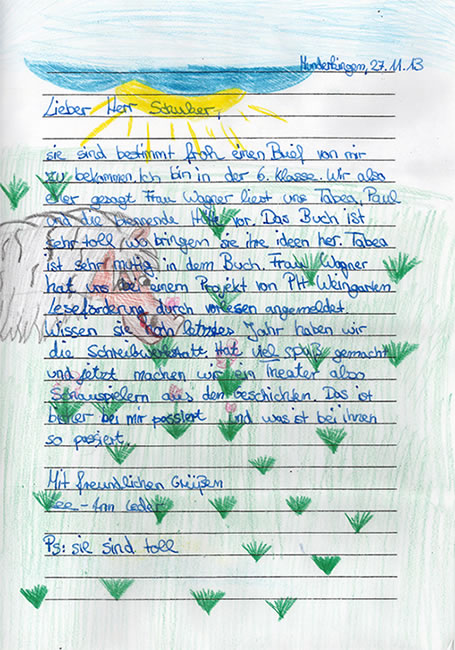 Hunderbingen, 27.11.13
Lieber Herr Schuber,
sie sind bestimmt froh einen Brief von mir
zu bekommen. Ich bin in der 6. Klasse. Wir also
eher gesagt Frau Wagner liest uns Tabea, Paul
und die brennende Hütte vor. Das Buch ist
sehr toll wo bringen sie ihre ideen her. Tabea
ist sehr mutig in dem Buch. Frau Wagner
hat uns bei einem Projekt von PH Weingarten
Leseförderung durch vorlesen angemeldet.
Wissen sie noch letztes Jahr haben wir
die Schreibwerkstatt hat viel spaß gemacht
und jetzt machen wir ein theater also
Schauspielern aus den Geschichten. Das ist
bisher bei mir passiert und was ist bei ihnen
so passiert.
Mit freundlichen Grüßen
Lee-Ann
Ps: sie sind toll